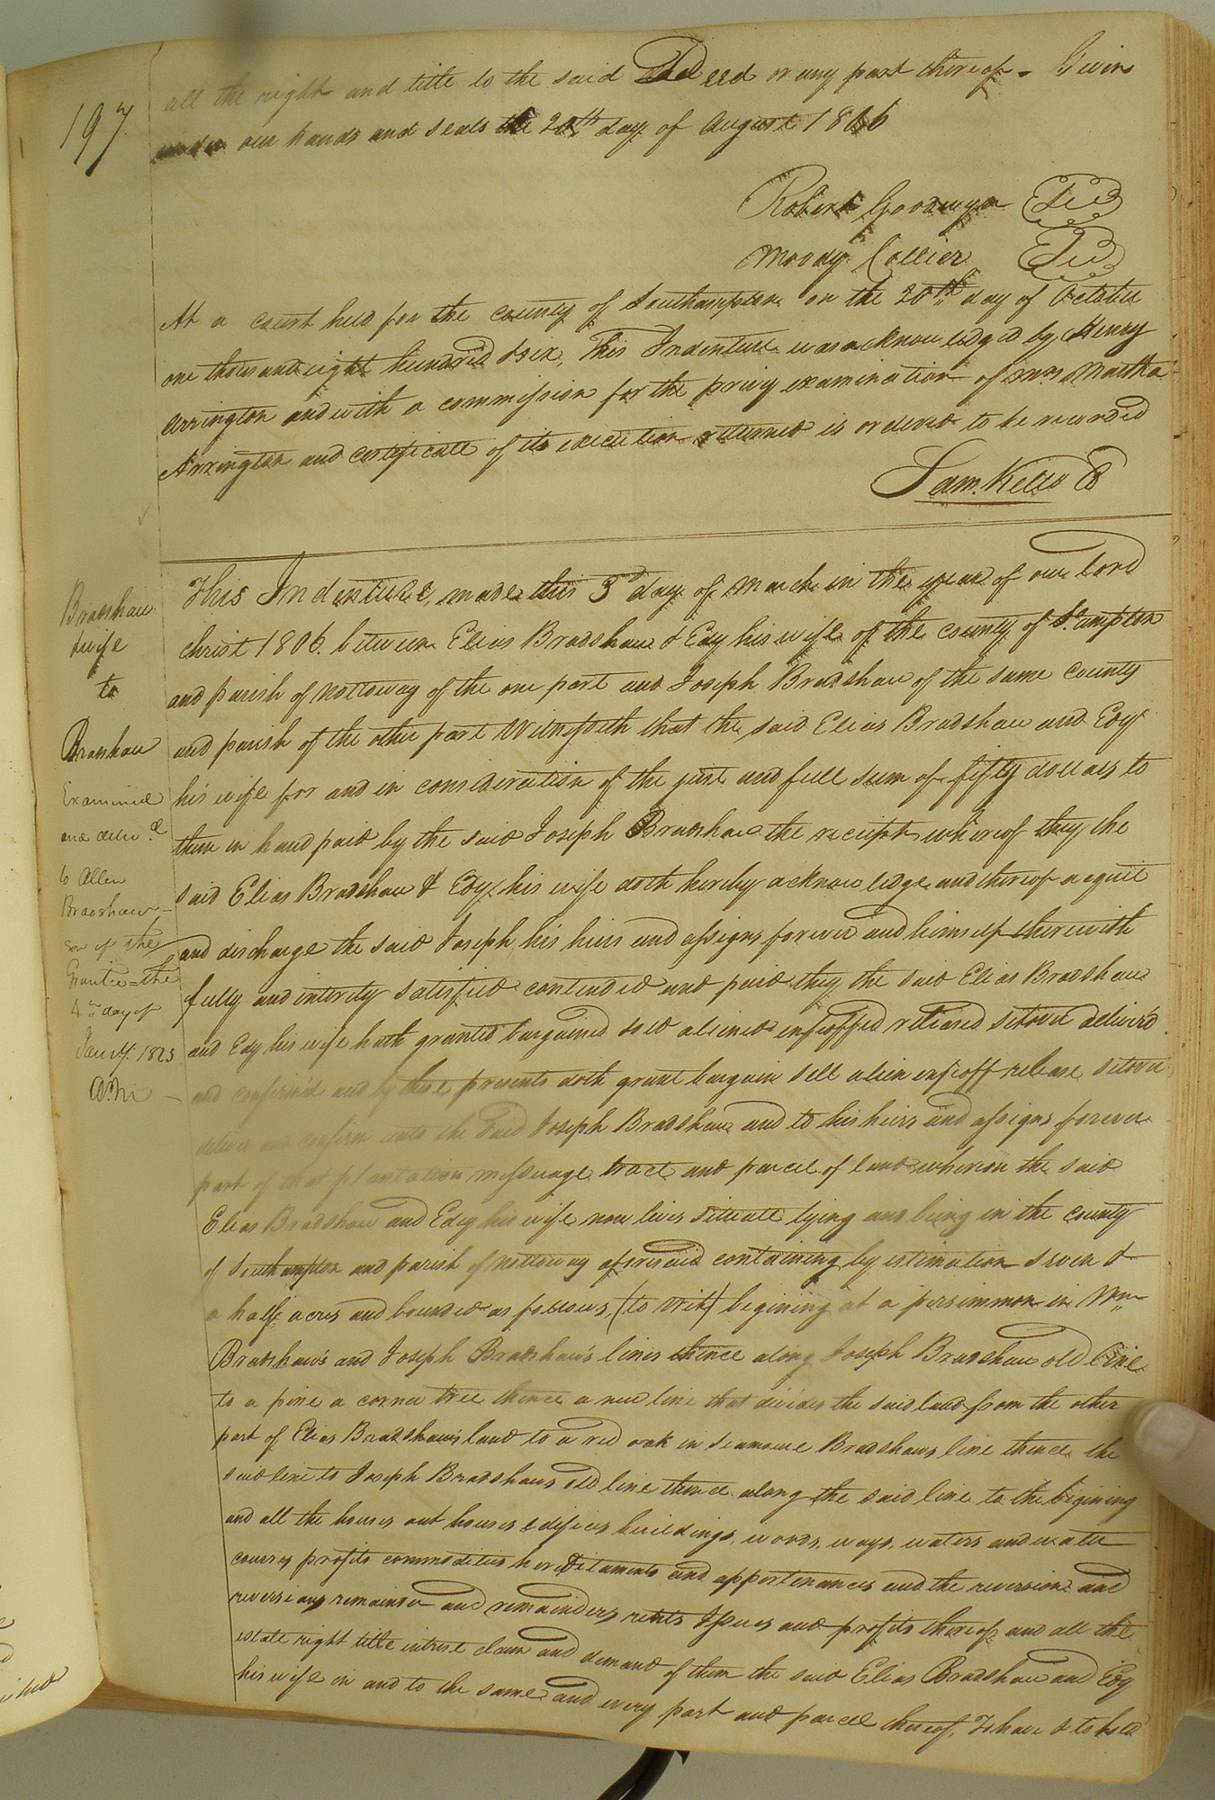 197
all the right and title to the said Deed or any part thereof - Given
under our hands and seals the 20th day of August 1806
Robert Goodwyn
Moody Collier
At a court held for the county of Southampton on the 20th day of October
one thousand eight hundred & six, This Indenture was acknowledged by Henry
Arrington and with a commission for the privy examination of Mrs Martha
Arrington and certificate of its execution returned is ordered to be recorded
Sam. Kello
Bradshaw
& wife
to
Bradshaw
Examined
and deliv.d
to Allen
Bradshaw
son of the
Grantee - the
4th day of
Jany. 1823
This Indenture, made this 3d day of March in the year of our lord
christ 1806. between Elias Bradshaw & Edy his wife of the county of S.ampton
and parish of Nottoway of the one part and Joseph Bradshaw of the same county
and parish of the other part Witnesseth that the said Elias Bradshaw and Edy
his wife for and in consideration of the just and full sum of fifty dollars to
them in hand paid by the said Joseph Bradshaw the receipt whereof they the
said Elias Bradshaw & Edy his wife doth hereby acknowledge and thereof acquit
and discharge the said Joseph, his heirs and assigns forever and himself therewith
fully and intirely satisfied contended and paid they the said Elias Bradshaw
and Edy his wife hath granted bargained sold aliened enfeoffed released setover deliver'd
and confirm'd and by these presents doth grant bargain sell alien enfeoff release setover
deliver and confirm unto the said Joseph Bradshaw and to his heirs and assigns forever
part of that plantation messuage tract and parcel of land whereon the said
Elias Bradshaw and Edy his wife now lives situate lying and being in the county
of Southampton and parish of Nottoway aforesaid containing by estimation seven &
a half acres and bounded as follows, (to wit) begining at a persimmon in Wm
Bradshaw's and Joseph Bradshaw's lines thence along Joseph Bradshaw old line
to a pine a corner tree thence a new line that divides the said land from the other
part of Elias Bradshaw's land to a red oak in Bradshaws line thence the
said line to Joseph Bradshaws old line thence along the said line to the begining
and all the houses out houses edifices buildings, woods, ways, waters and water
courses profits commodities hereditaments and appertenances and the reversion and
reversions remainder and remainders rents Issues and profits thereof and all the
estate right title intrest claim and demand of them the said Elias Bradshaw and Edy
his wife in and to the same and every part and parcel thereof, To have & to hold